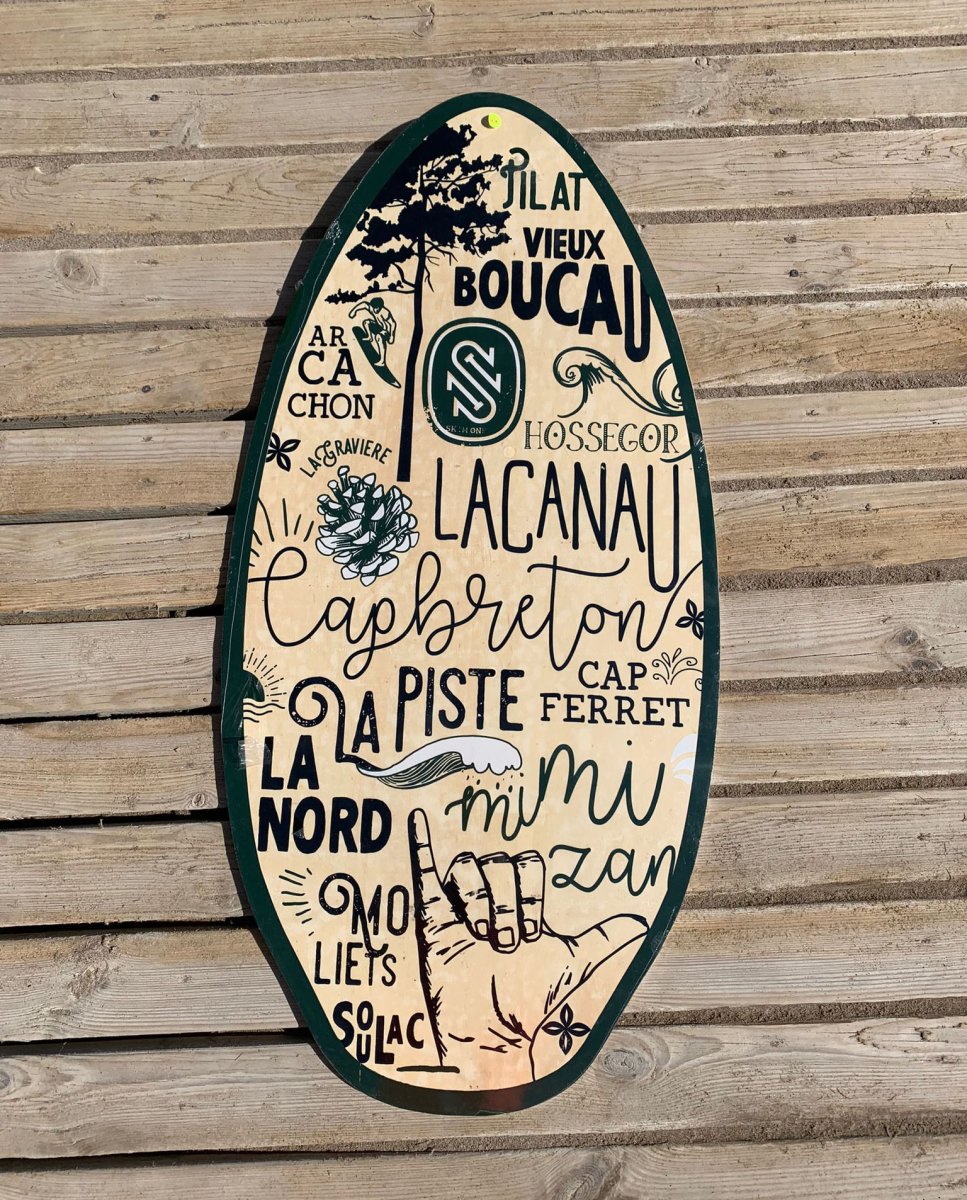 PILAT
VIEUX
BOUCAU
AR
CA
CHON
SKIM ONE
HOSSEGOR
LA GRAVIERE
LACANAU
Capbreton
CAP
FERRET
LA PISTE
LA
NORD
mimi
zan
MO
LIETS
SOULAC